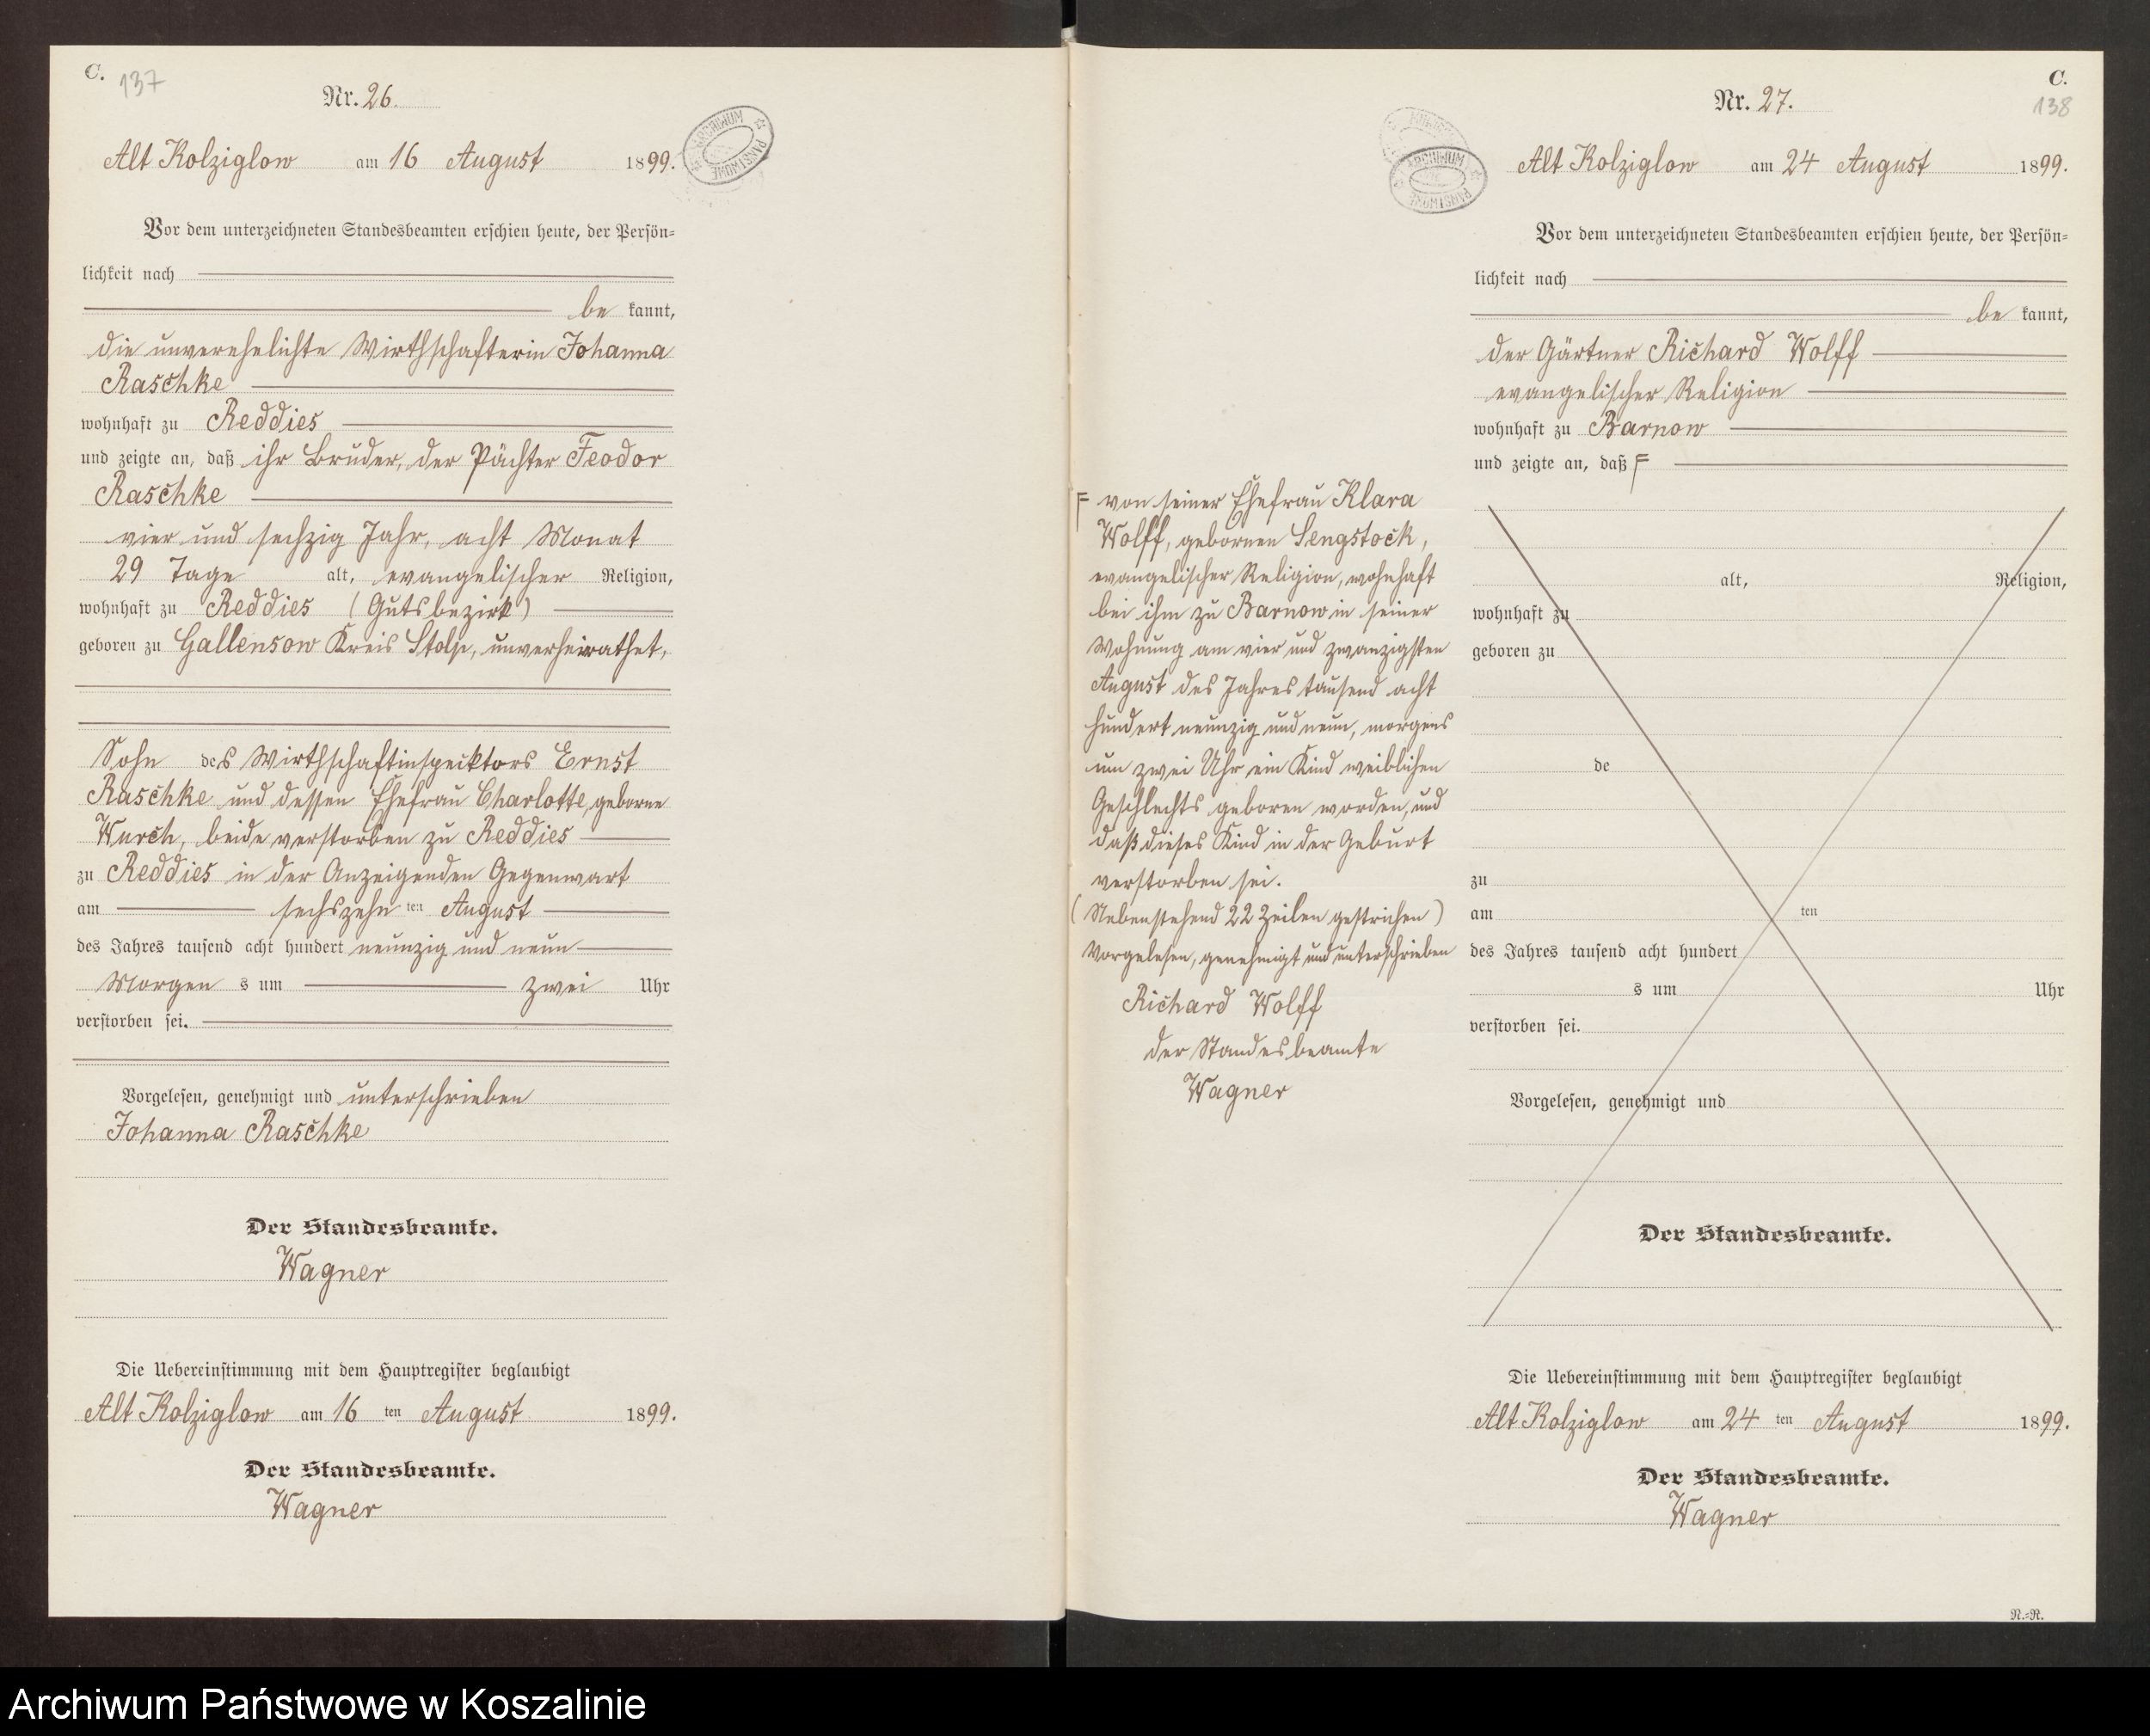 C. 137
Nr. 26.
Alt Kolziglow am 16 August 1899.
Vor dem unterzeichneten Standesbeamten erschien heute, der Persön-
lichkeit nach
be kannt,
die unverehelichte Wirthschafterin Johanna
Raschke
wohnhaft zu Reddies
und zeigte an, daß ihr Bruder, der Pächter Feodor
Raschke
vier und sechzig Jahr, acht Monat
29 Tage alt, evangelischer Religion,
wohnhaft zu Reddies (Gutsbezirk)
geboren zu Gallensow Kreis Stolp, unverheirathet,
Sohn des Wirthschaftinspecktors Ernst
Raschke und dessen Ehefrau Charlotte, geborne
Wurch, beide verstorben zu Reddies
zu Reddies in der Anzeigenden Gegenwart
am sechszehn ten August
des Jahres tausend acht hundert neunzig und neun
Morgen s um zwei Uhr
verstorben sei.
Vorgelesen, genehmigt und unterschrieben
Johanna Raschke
Der Standesbeamte.
Wagner
Die Uebereinstimmung mit dem Hauptregister beglaubigt
Alt Kolziglow am 16 ten August 1899.
Der Standesbeamte.
Wagner
ARCHIWUM PAŃSTWOWE
C.
138
Nr. 27.
Alt Kolziglow am 24 August 1899.
ARCHIWUM PAŃSTWOWE
Vor dem unterzeichneten Standesbeamten erschien heute, der Persön-
lichkeit nach
be kannt,
der Gärtner Richard Wolff
evangelischer Religion
wohnhaft zu Barnow
und zeigte an, daß F
F von seiner Ehefrau Klara
Wolff, gebornen Sengstock,
evangelischer Religion, wohnhaft
bei ihm zu Barnow in seiner
Wohnung am vier und zwanzigsten
August des Jahres tausend acht
hundert neunzig und neun, morgens
um zwei Uhr ein Kind weiblichen
Geschlechts geboren worden, und
daß dieses Kind in der Geburt
verstorben sei.
(Nebenstehend 22 Zeilen gestrichen)
Vorgelesen, genehmigt und unterschrieben
Richard Wolff
der Standesbeamte
Wagner
alt, Religion,
wohnhaft zu
geboren zu
de
zu
am ten
des Jahres tausend acht hundert
s um Uhr
verstorben sei.
Vorgelesen, genehmigt und
Der Standesbeamte.
Die Uebereinstimmung mit dem Hauptregister beglaubigt
Alt Kolziglow am 24 ten August 1899.
Der Standesbeamte.
Wagner
N.=N.
Archiwum Państwowe w Koszalinie